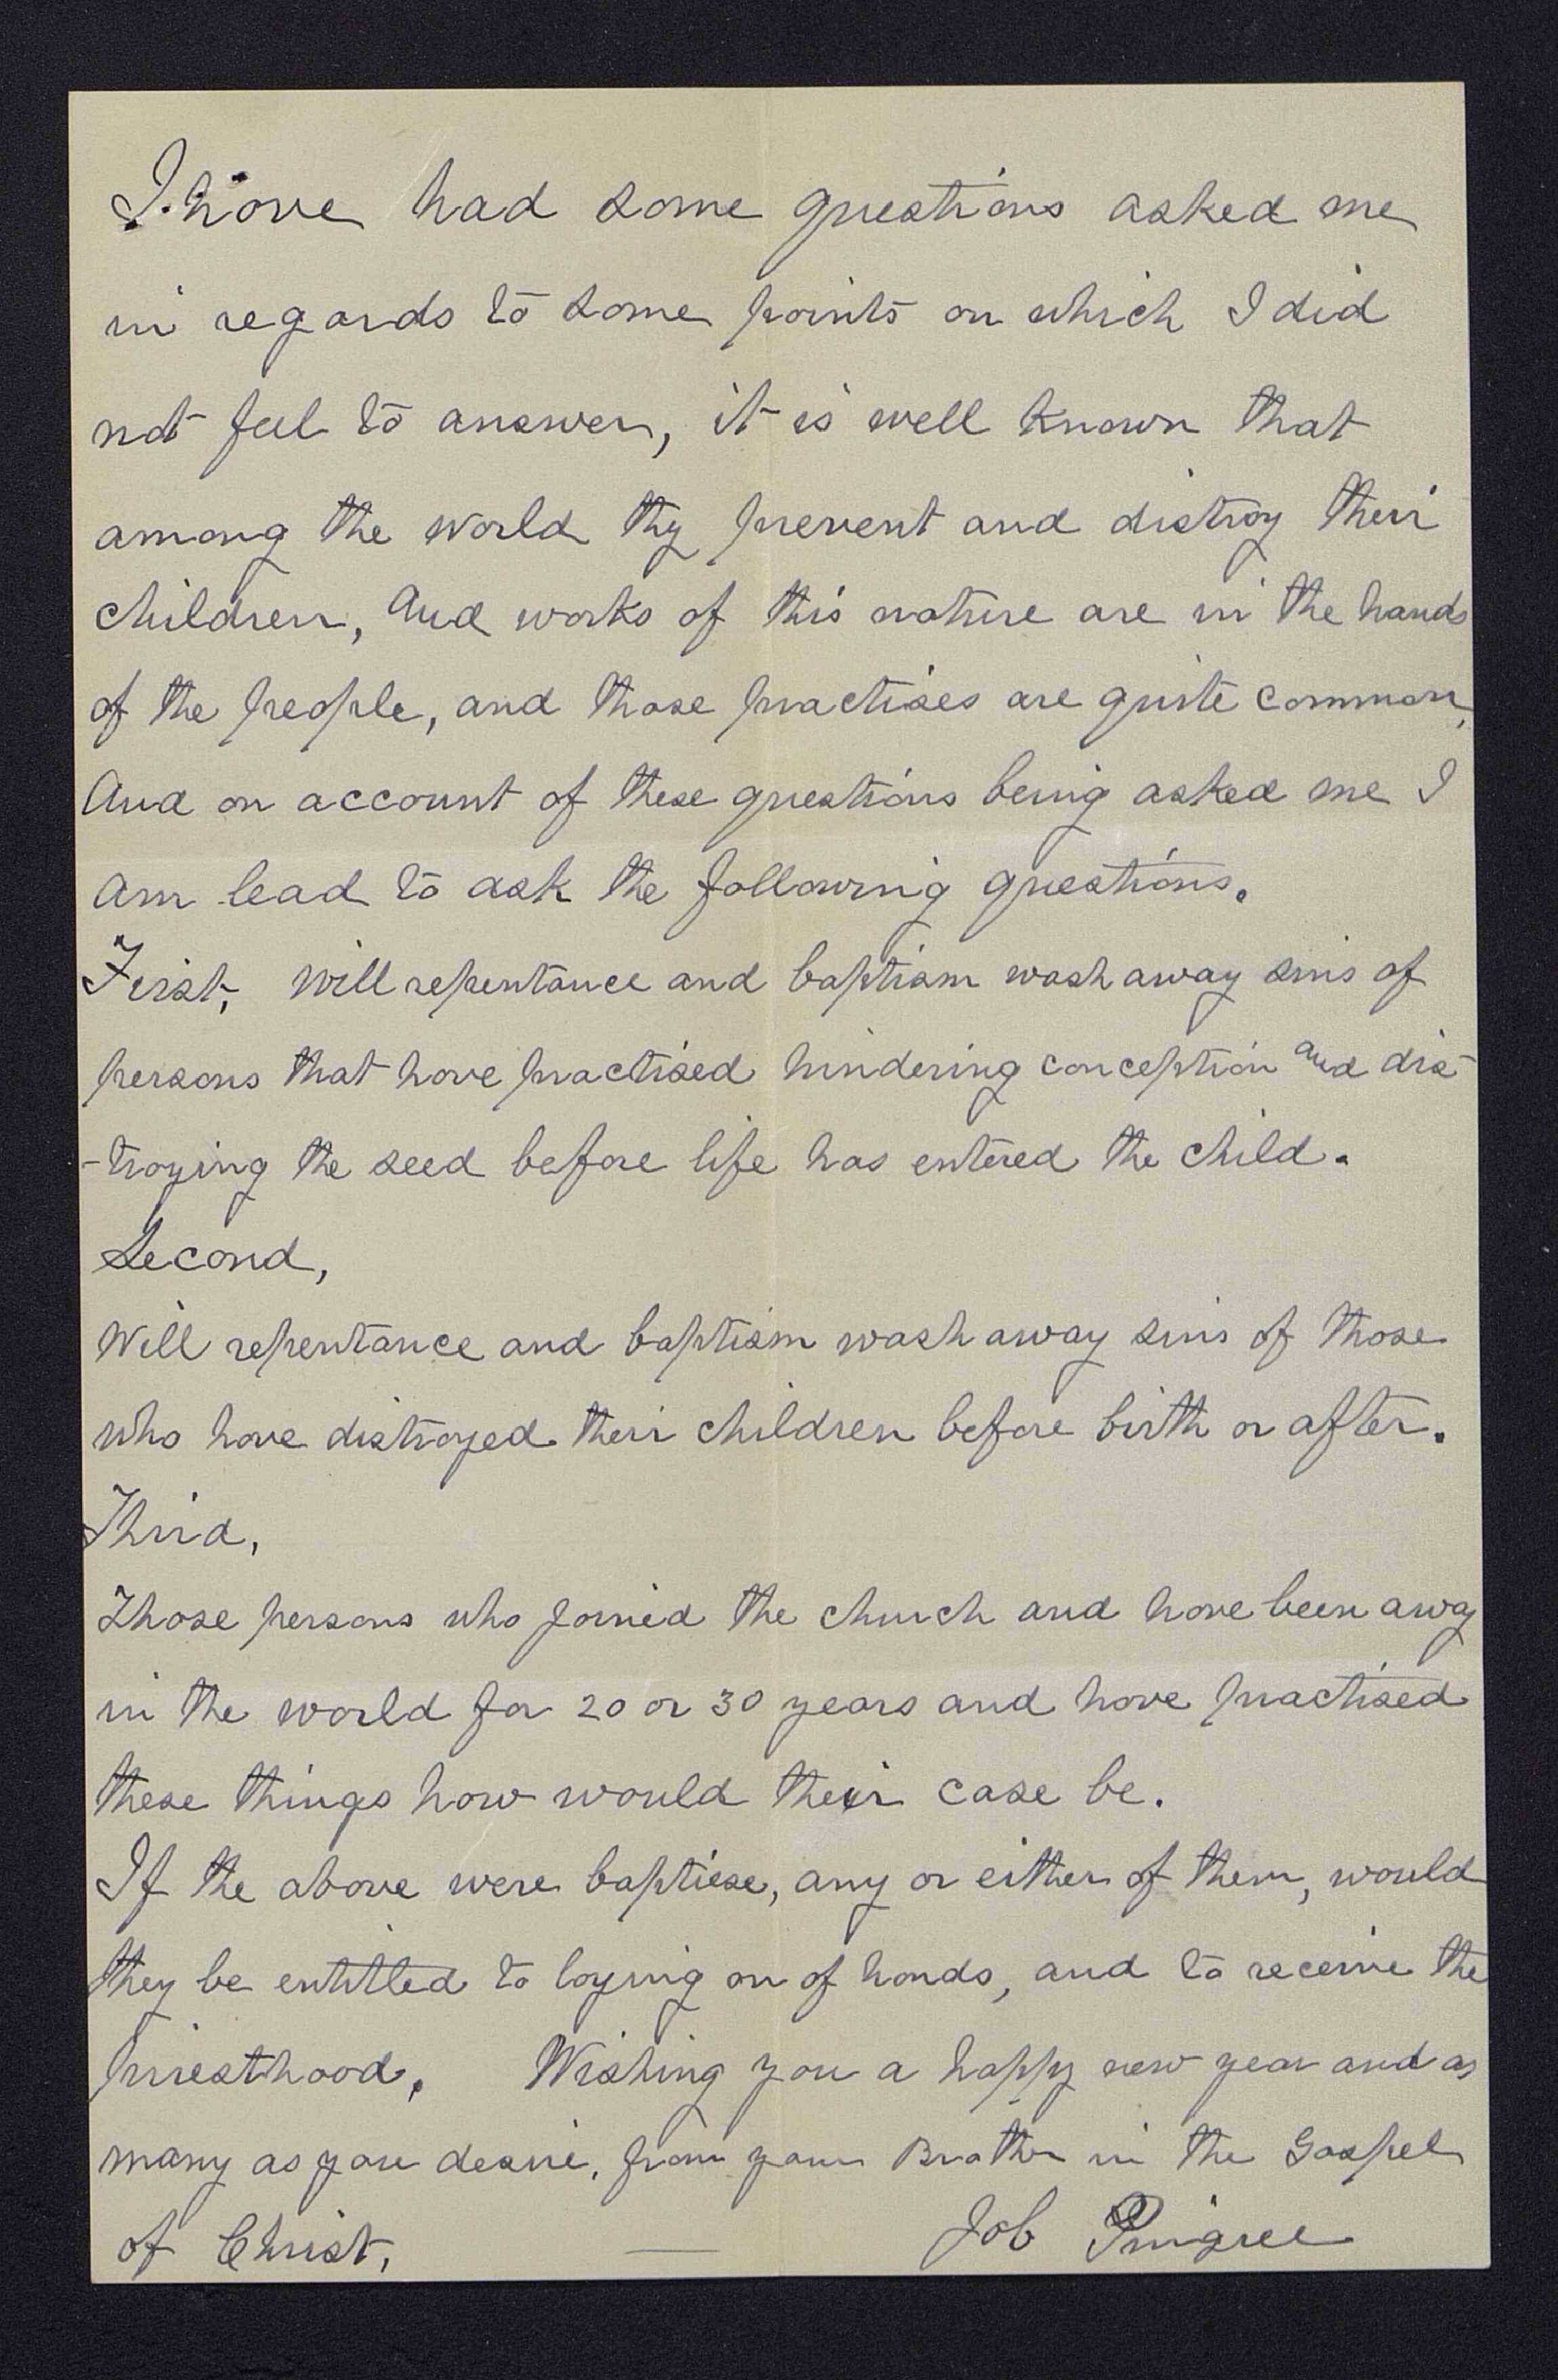 I have had some questions asked me
in regards to some points on which I did
not feel to answer, it is well known that
among the world thy prevent and distroy their
children, And works of this nature are in the hands
of the people, and those practises are quite common,
And on account of these questions being asked me I
am lead to ask the following questions.
First, Will repentance and baptism wash away sins of
persons that have practised hindering conception and dis-
-troying the seed before life has entered the child.
Second,
Will repentance and baptism wash away sins of those
who have distroyed their children before birth or after.
Third,
Those persons who joined the church and have been away
in the world for 20 or 30 years and have practised
these things how would their case be.
If the above were baptiese, any or either of them, would
they be entitled to laying on of hands, and to receive the
Priesthood. Wishing you a happy new year and as
many as you desire, from your Brother in the Gospel
of Christ, Job Pingree